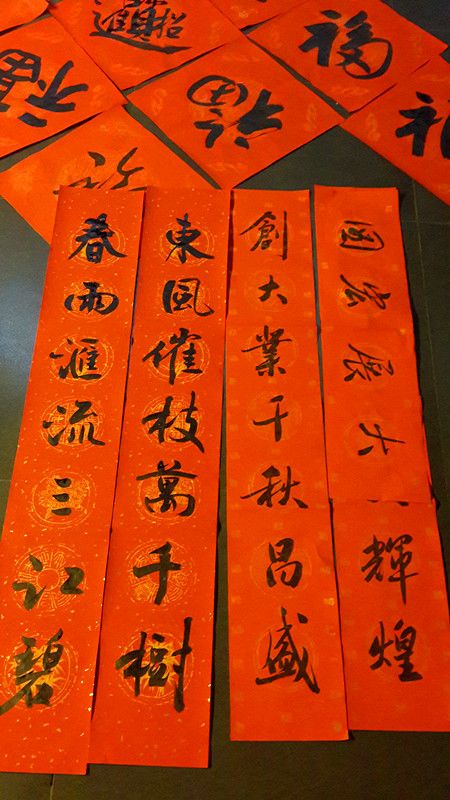 福
福
福
大展宏圖
輝煌
創大業千秋昌盛
東風催枝萬千樹
春雨滙流三江碧